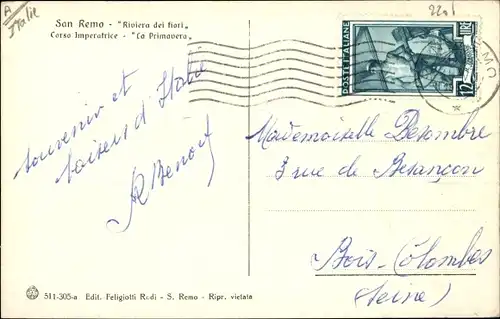 A
Italie
San Remo - "Riviera dei fiori„
Corso Imperatrice - "La Primavera„
POSTE ITALIANE
souvenir et
baisers d'Italie
Benoit
Mademoiselle Desombre
3 rue de Besançon
Bois-Colombes
(Seine)
511-305-a Edit. Feligiotti Rodi - S. Remo - Ripr. vietata